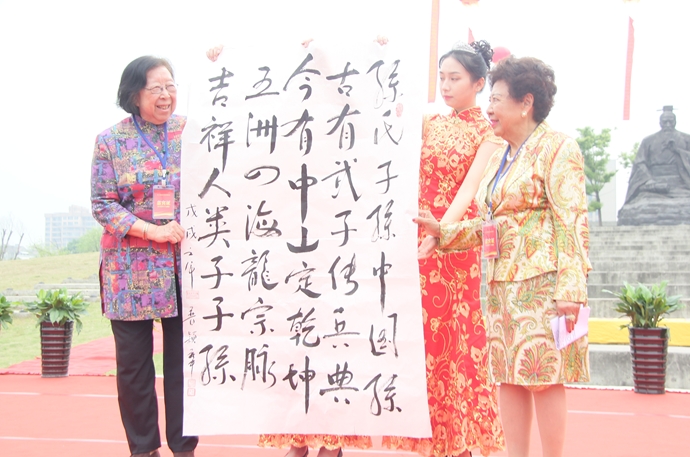 孫氏子孫中国孫
古有武子传兵典
今有中山定乾坤
五洲四海龍宗脉
吉祥人类子子孫
戊戌年